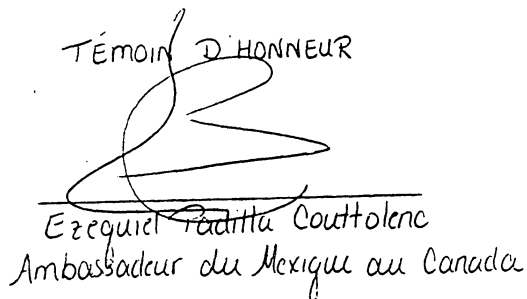 TÉMOIN D'HONNEUR
Ezequiel Padilla Couttolenc
Ambassadeur du Mexique au Canada